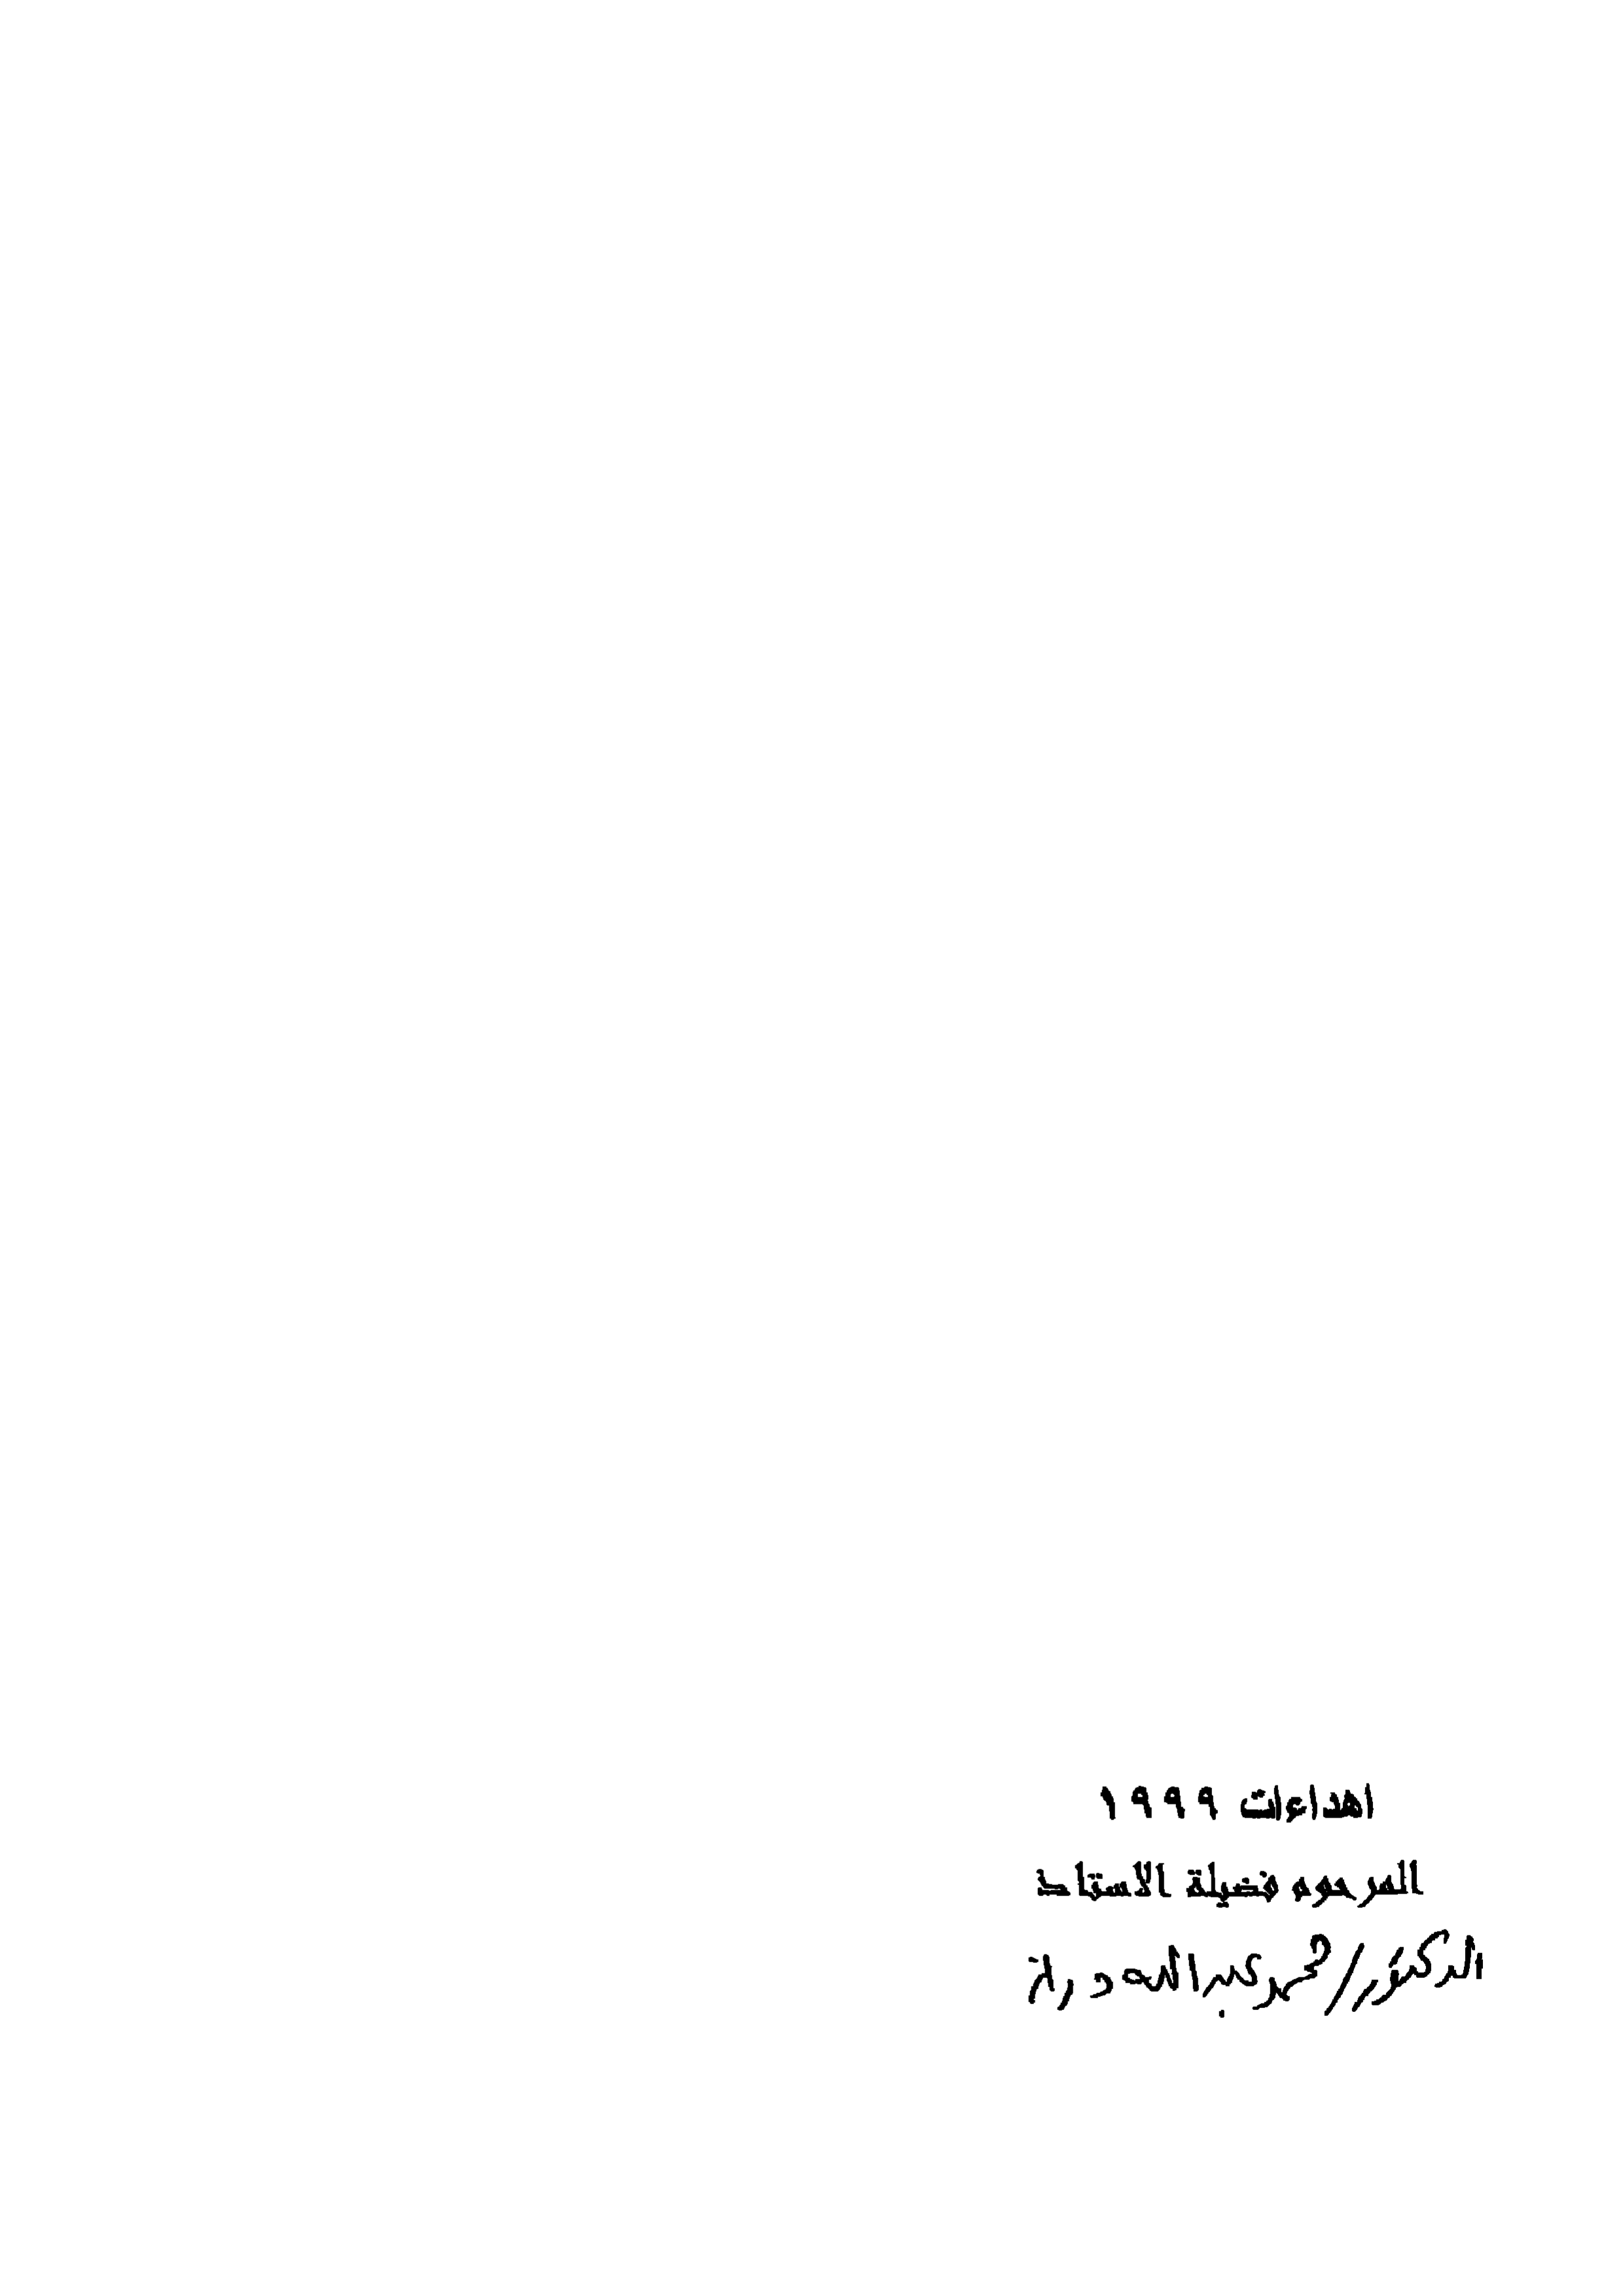 اهداءات ١٩٩٩
المرحوم فضيلة الاستاذ
الدكتور/محمد عبد الله دراز